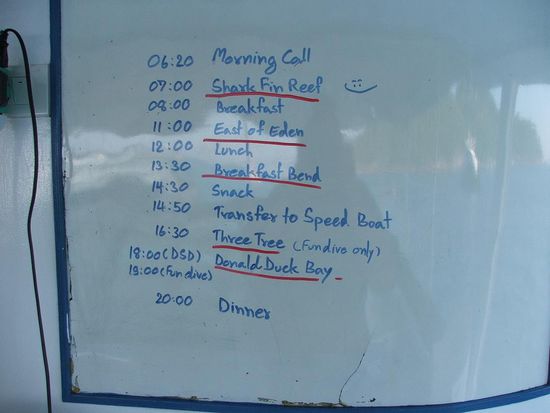 06:20 Morning Call
07:00 Shark Fin Reef
08:00 Breakfast
11:00 East of Eden
12:00 Lunch
13:30 Breakfast Bend
14:30 Snack
14:50 Transfer to Speed Boat
16:30 Three Tree (Fundive only)
18:00 (DSD) Donald Duck Bay
19:00 (Fundive)
20:00 Dinner